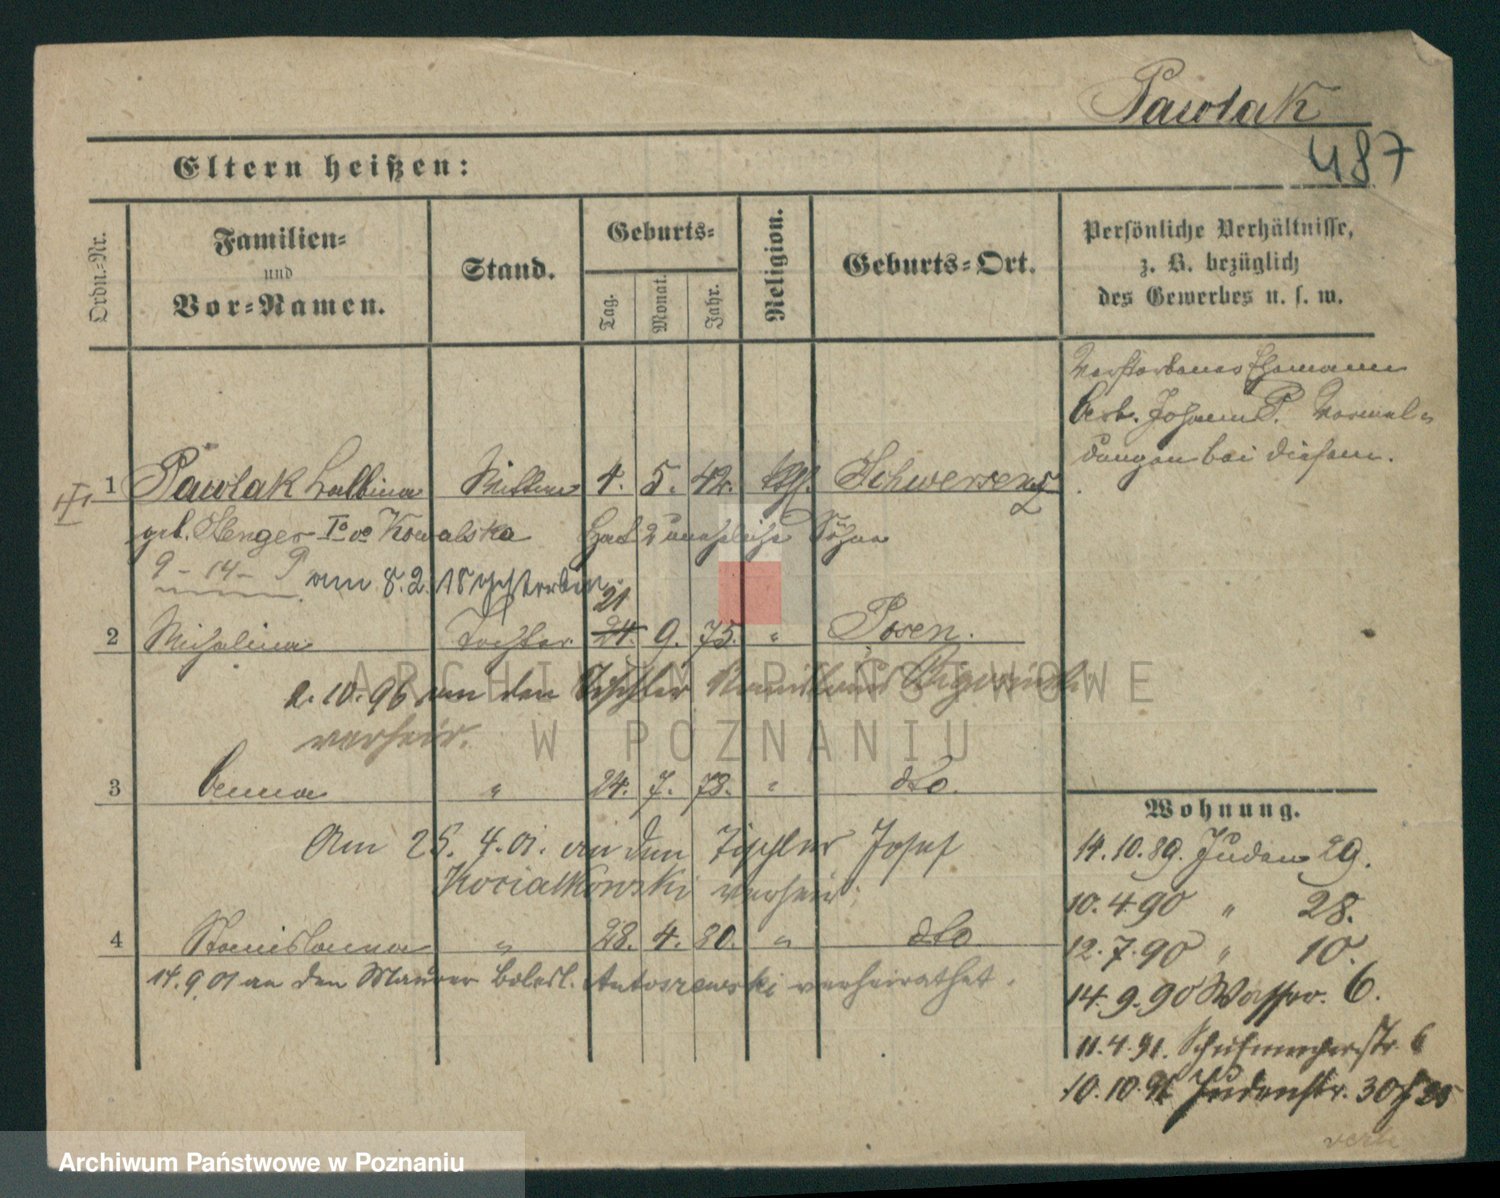 Pawlak
487
Eltern heißen:
Ordn.-Nr.
Familien-
und
Vor-Namen.
Stand.
Geburts-
Tag.
Monat.
Jahr.
Religion.
Geburts-Ort.
Persönliche Verhältnisse,
z. B. bezüglich
des Gewerbes u. s. w.
Verstorbenes Ehemann
Arb. Johann P. Vormel-
dungen bei diesem.
1 Pawlak Balbina Wittwe 4. 5. 42. kath. Schwersenz
geb. Stenger Io vo Kowalska Hat 2 uneheliche Söhne
9 - 14 - P am 8.2. verstorben.
21
2 Michalina Tochter 24. 9. 75. " Posen.
2.10.96 an den Tischler
verheir.
3 Anna " 24. 7. 78. " dto.
Am 25. 4. 01. an den Tischler Josef
Kocialkowski verheir.
4 Stanislawa " 28. 4. 80. " dto
14.9.01 an den Maurer Bolesl. Antoszewski verheirathet.
Wohnung.
14.10.89. Juden 29.
10.4.90 " 28.
12.7.90 " 10.
14.9.90 Wasser. 6.
11.4.91. Schuhmacherstr. 6
10.10.91 Judenstr. 30
verh
ARCHIWUM PAŃSTWOWE
W POZNANIU
Archiwum Państwowe w Poznaniu